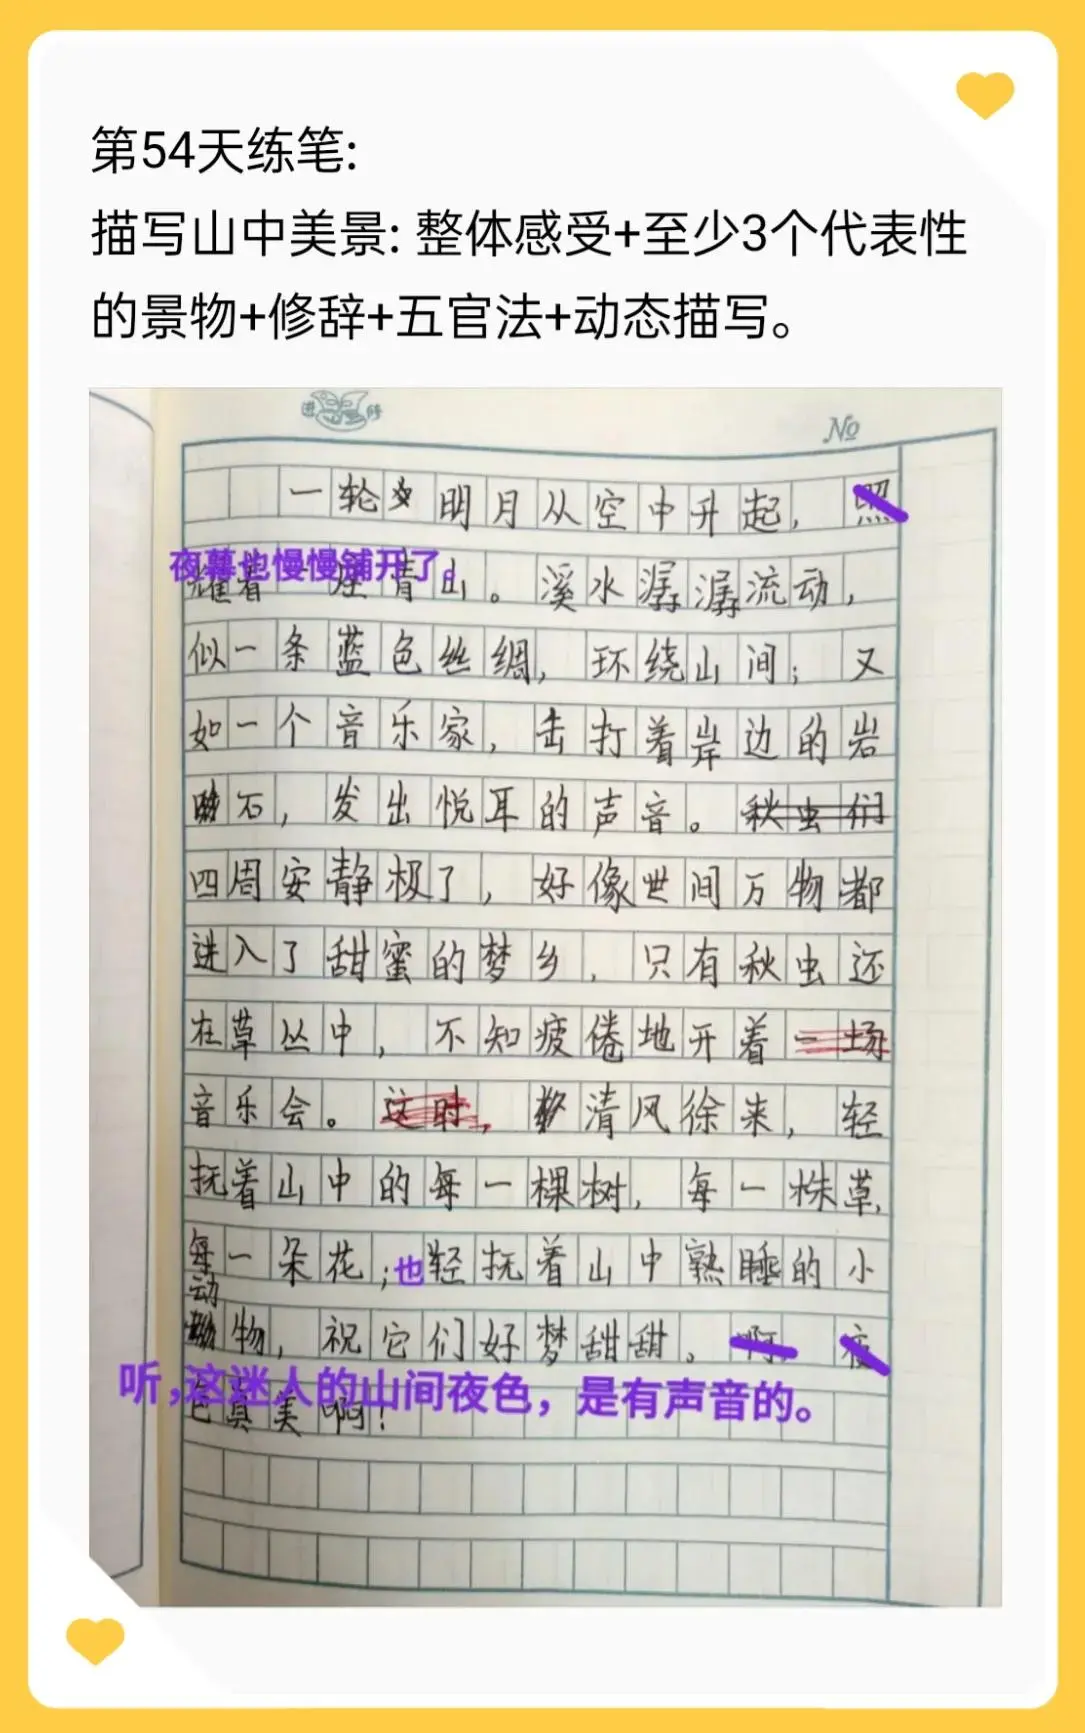 第54天练笔:
描写山中美景: 整体感受+至少3个代表性
的景物+修辞+五官法+动态描写。
进修
№
一轮明月从空中升起，照
夜幕也慢慢铺开了。
耀着一座青山。溪水潺潺流动，
似一条蓝色丝绸，环绕山间；又
如一个音乐家，击打着岸边的岩
石，发出悦耳的声音。秋虫们
四周安静极了，好像世间万物都
进入了甜蜜的梦乡，只有秋虫还
在草丛中，不知疲倦地开着一场
音乐会。这时，清风徐来，轻
抚着山中的每一棵树，每一株草，
每一朵花；也轻抚着山中熟睡的小
动
物，祝它们好梦甜甜。啊，夜
听,这迷人的山间夜色，是有声音的。
色真美啊！